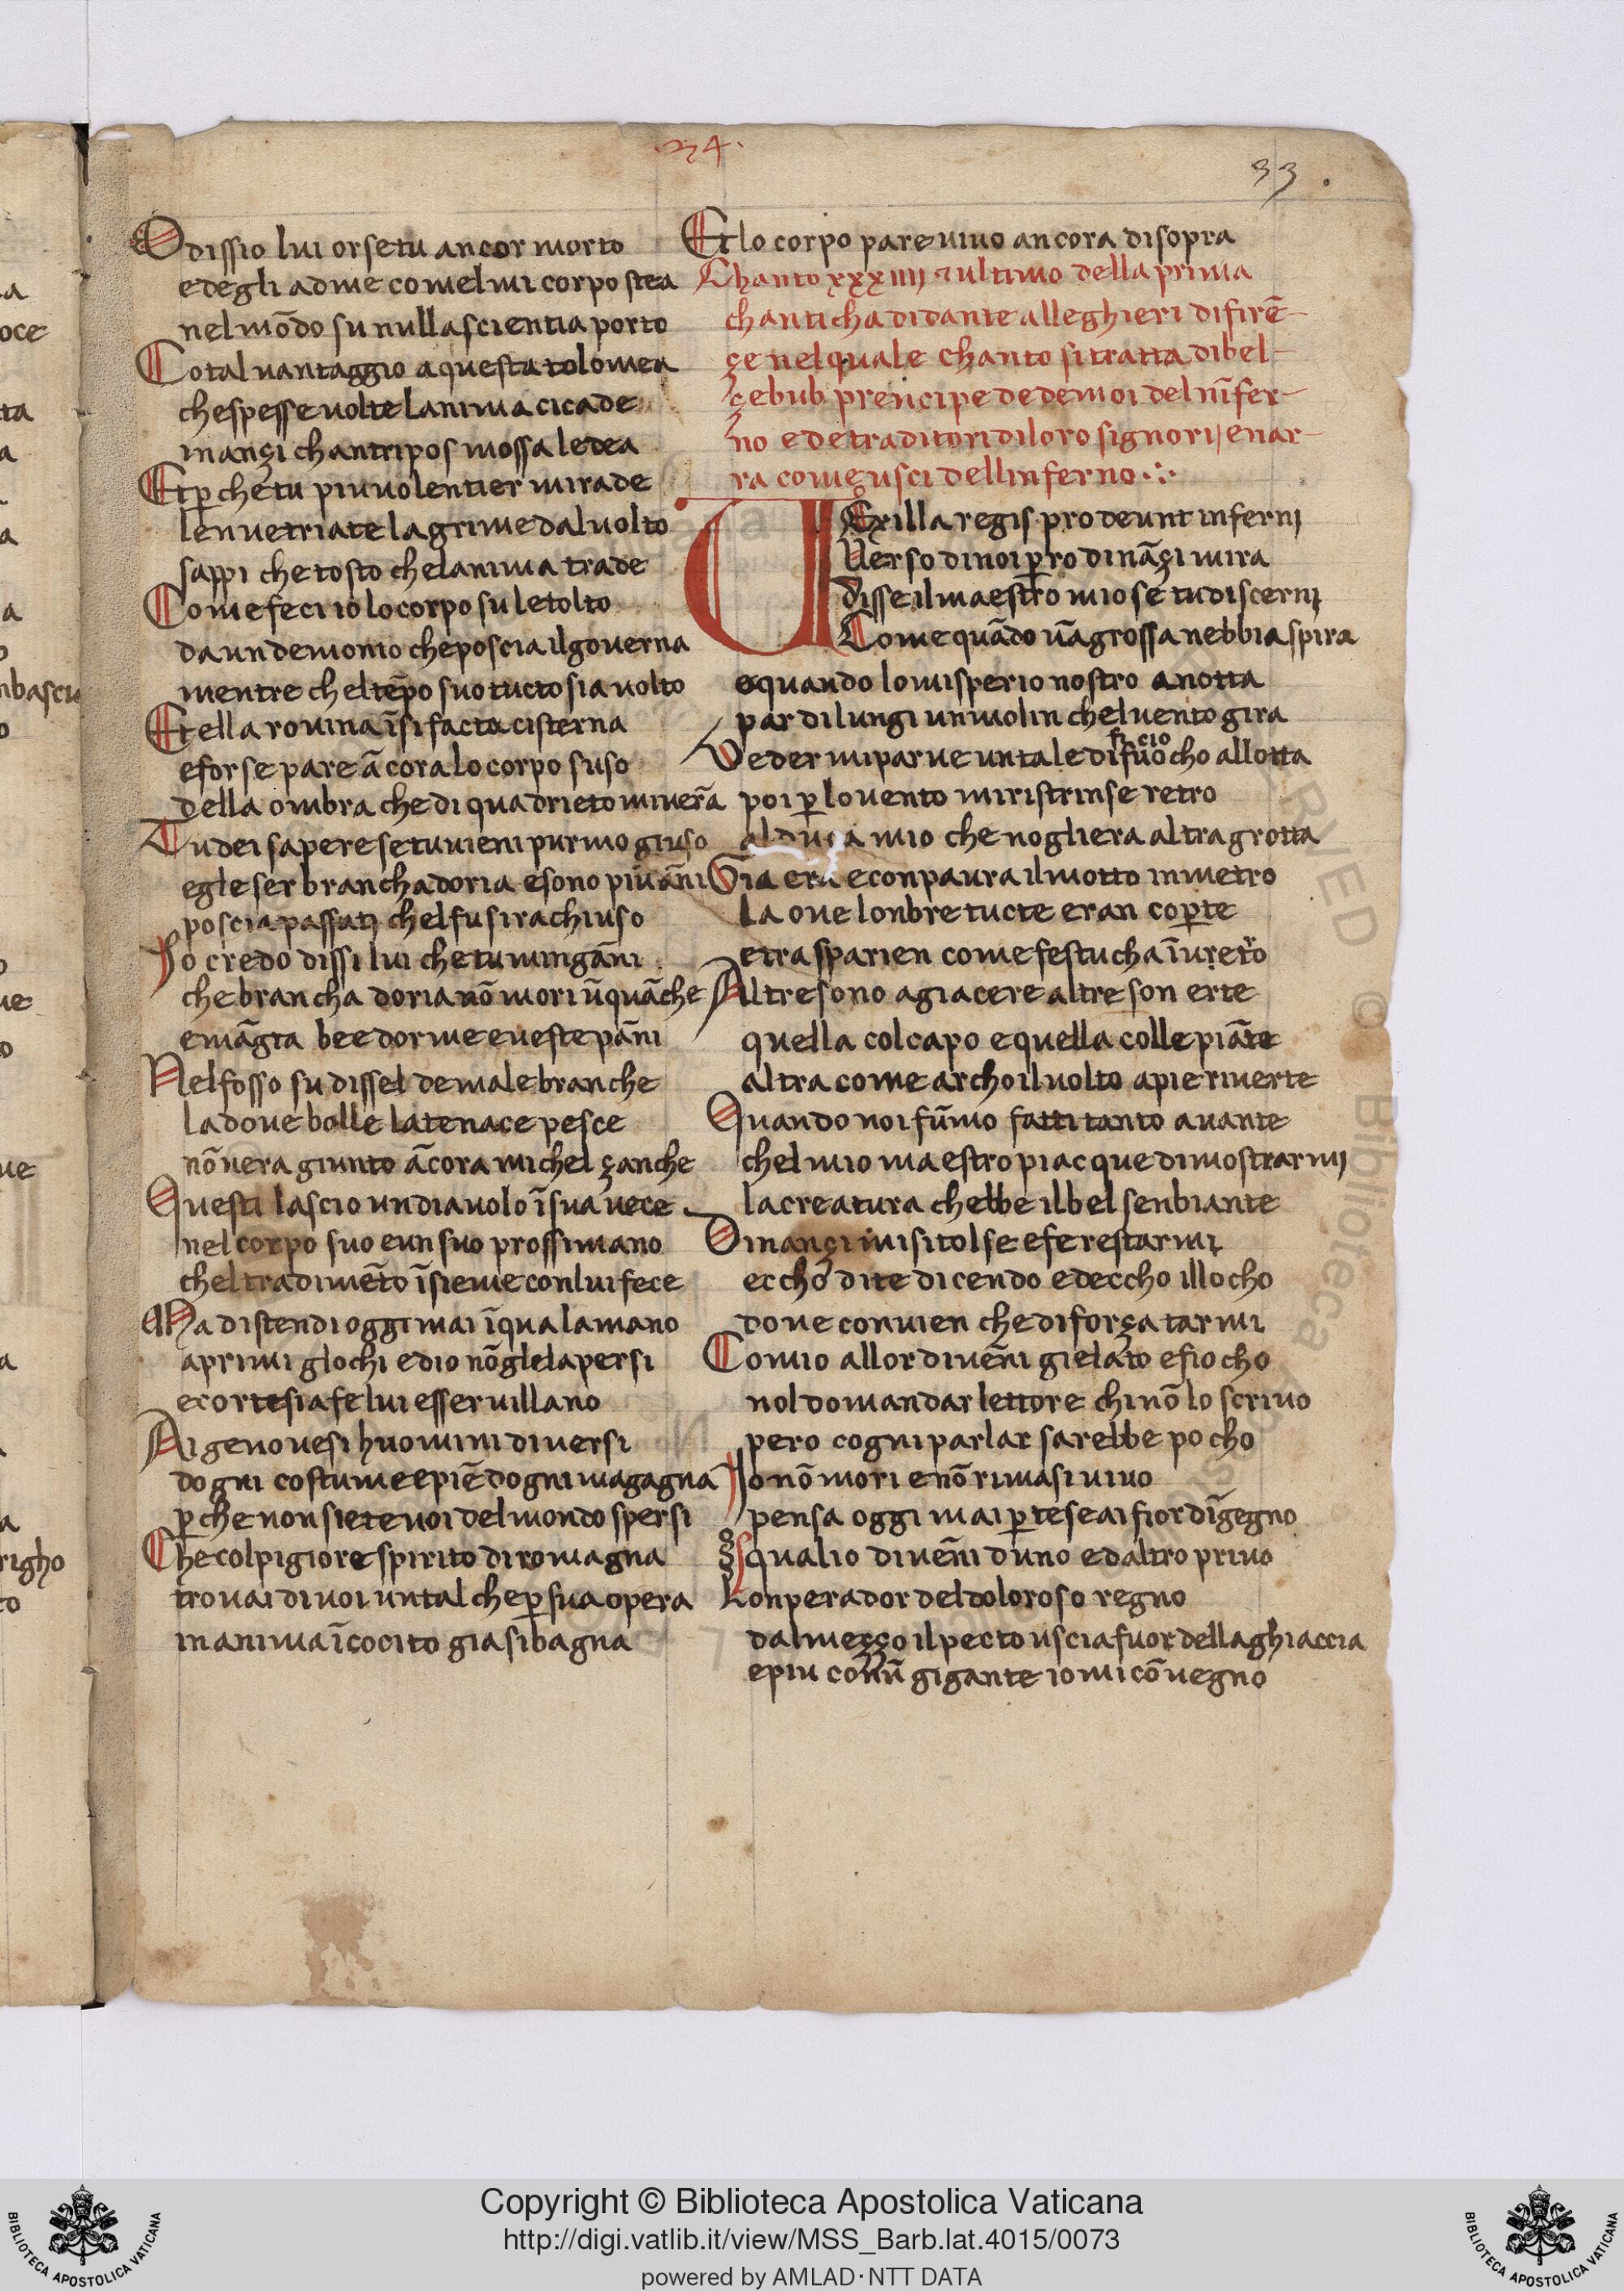 .34.
33.
Odissio lui orsetu ancor morto
edegli adme comelmi corpo stea
nelmõdo su nulla scientia porto
Cotal vantaggio aquesta tolomea
chespesse volte lanima cicade
inançi chantripos mossa ledea
Et p̱che tu piu volentier mirade
lenvetriate lagrime dal volto
sappi che tosto chelanima trade
Come feci io lo corpo su letolto
da un demonio che poscia il governa
mentre chel tẽpo suo tucto sia volto
Et ella rovina ĩ si facta cisterna
eforse pare ãcora lo corpo suso
della ombra che di qua drieto mi vera
Tu dei sapere se tu vieni pur mo giuso
egle ser brancha doria esono piu ãni
poscia passatj chel fu si rachiuso
Jo credo dissi lui che tu mingãni
che brancha doria nõ mori ũquãche
emãgia bee dorme eveste pãni
Nel fosso su dissel de malebranche
la dove bolle la tenace pesce
nõ vera giunto ãcora michel çanche
Questi lascio un diavolo ĩ sua vece
nel corpo suo eun suo prossimano
chel tradimẽto ĩsieme con lui fece
Ma distendi oggi mai ĩ qua la mano
aprimi glochi edio nõ glelapersi
ecortesia fe lui esser villano
Ai genovesi huomini diversi
dogni costume epiẽ dogni magagna
p̱che non siete voi del mondo spersi
Che col pigiore spirito di romagna
trovai di voi un tal che p̱ sua opera
in anima ĩ cocito gia si bagna
Et lo corpo pare vivo ancora di sopra
Chanto xxxiiij ⁊ ultimo della prima
chanticha di dante alleghieri di firẽ-
çe nel quale chanto si tratta di bel-
çebub principe de demoi del nĩfer-
no e de traditori di loro signori, e nar-
ra come usci dell inferno ∴
VExilla regis prodeunt infernj
Verso di noi p̱ro dinãçi mira
disse il maestro mio se tu discernj
Come quãdo ũa grossa nebbia spira
oquando lomisperio nostro anotta
par di lungi un molin chel vento gira
Veder mi parve un tale dificio
fuocho allotta
poi p̱ lo vento mi ristrinse retro
al duca mio che no gliera altra grotta
Gia era econ paura il motto in metro
La ove lonbre tucte eran cop̱te
etrasparien come festucha ĩ vretro
Altre sono agiacere altre son erte
quella col capo equella colle piãte
altra come archo il volto apie riverte
Quando noi fũmo fatti tanto avante
chel mio maestro piacque di mostrarmj
la creatura chebbe il bel senbiante
Dinançi mi si tolse efe restarmj
eccho dite dicendo edeccho il locho
dove convien che di força tarmi
Comio allor divẽni gielato efiocho
nol domandar lettore chi nõ lo scrivo
pero cogni parlar sarebbe pocho
Jo nõ mori enõ rimasi vivo
pensa oggi mai p̱ te se ai fior dĩgegno
qual io divẽni duno edaltro privo
Lonperador del doloroso regno
dal meçço il pecto uscia fuor della ghiaccia
epiu con ũ gigante io mi cõvegno
Copyright © Biblioteca Apostolica Vaticana
http://digi.vatlib.it/view/MSS_Barb.lat.4015/0073
powered by AMLAD·NTT DATA
BIBLIOTECA APOSTOLICA VATICANA
BIBLIOTECA APOSTOLICA VATICANA